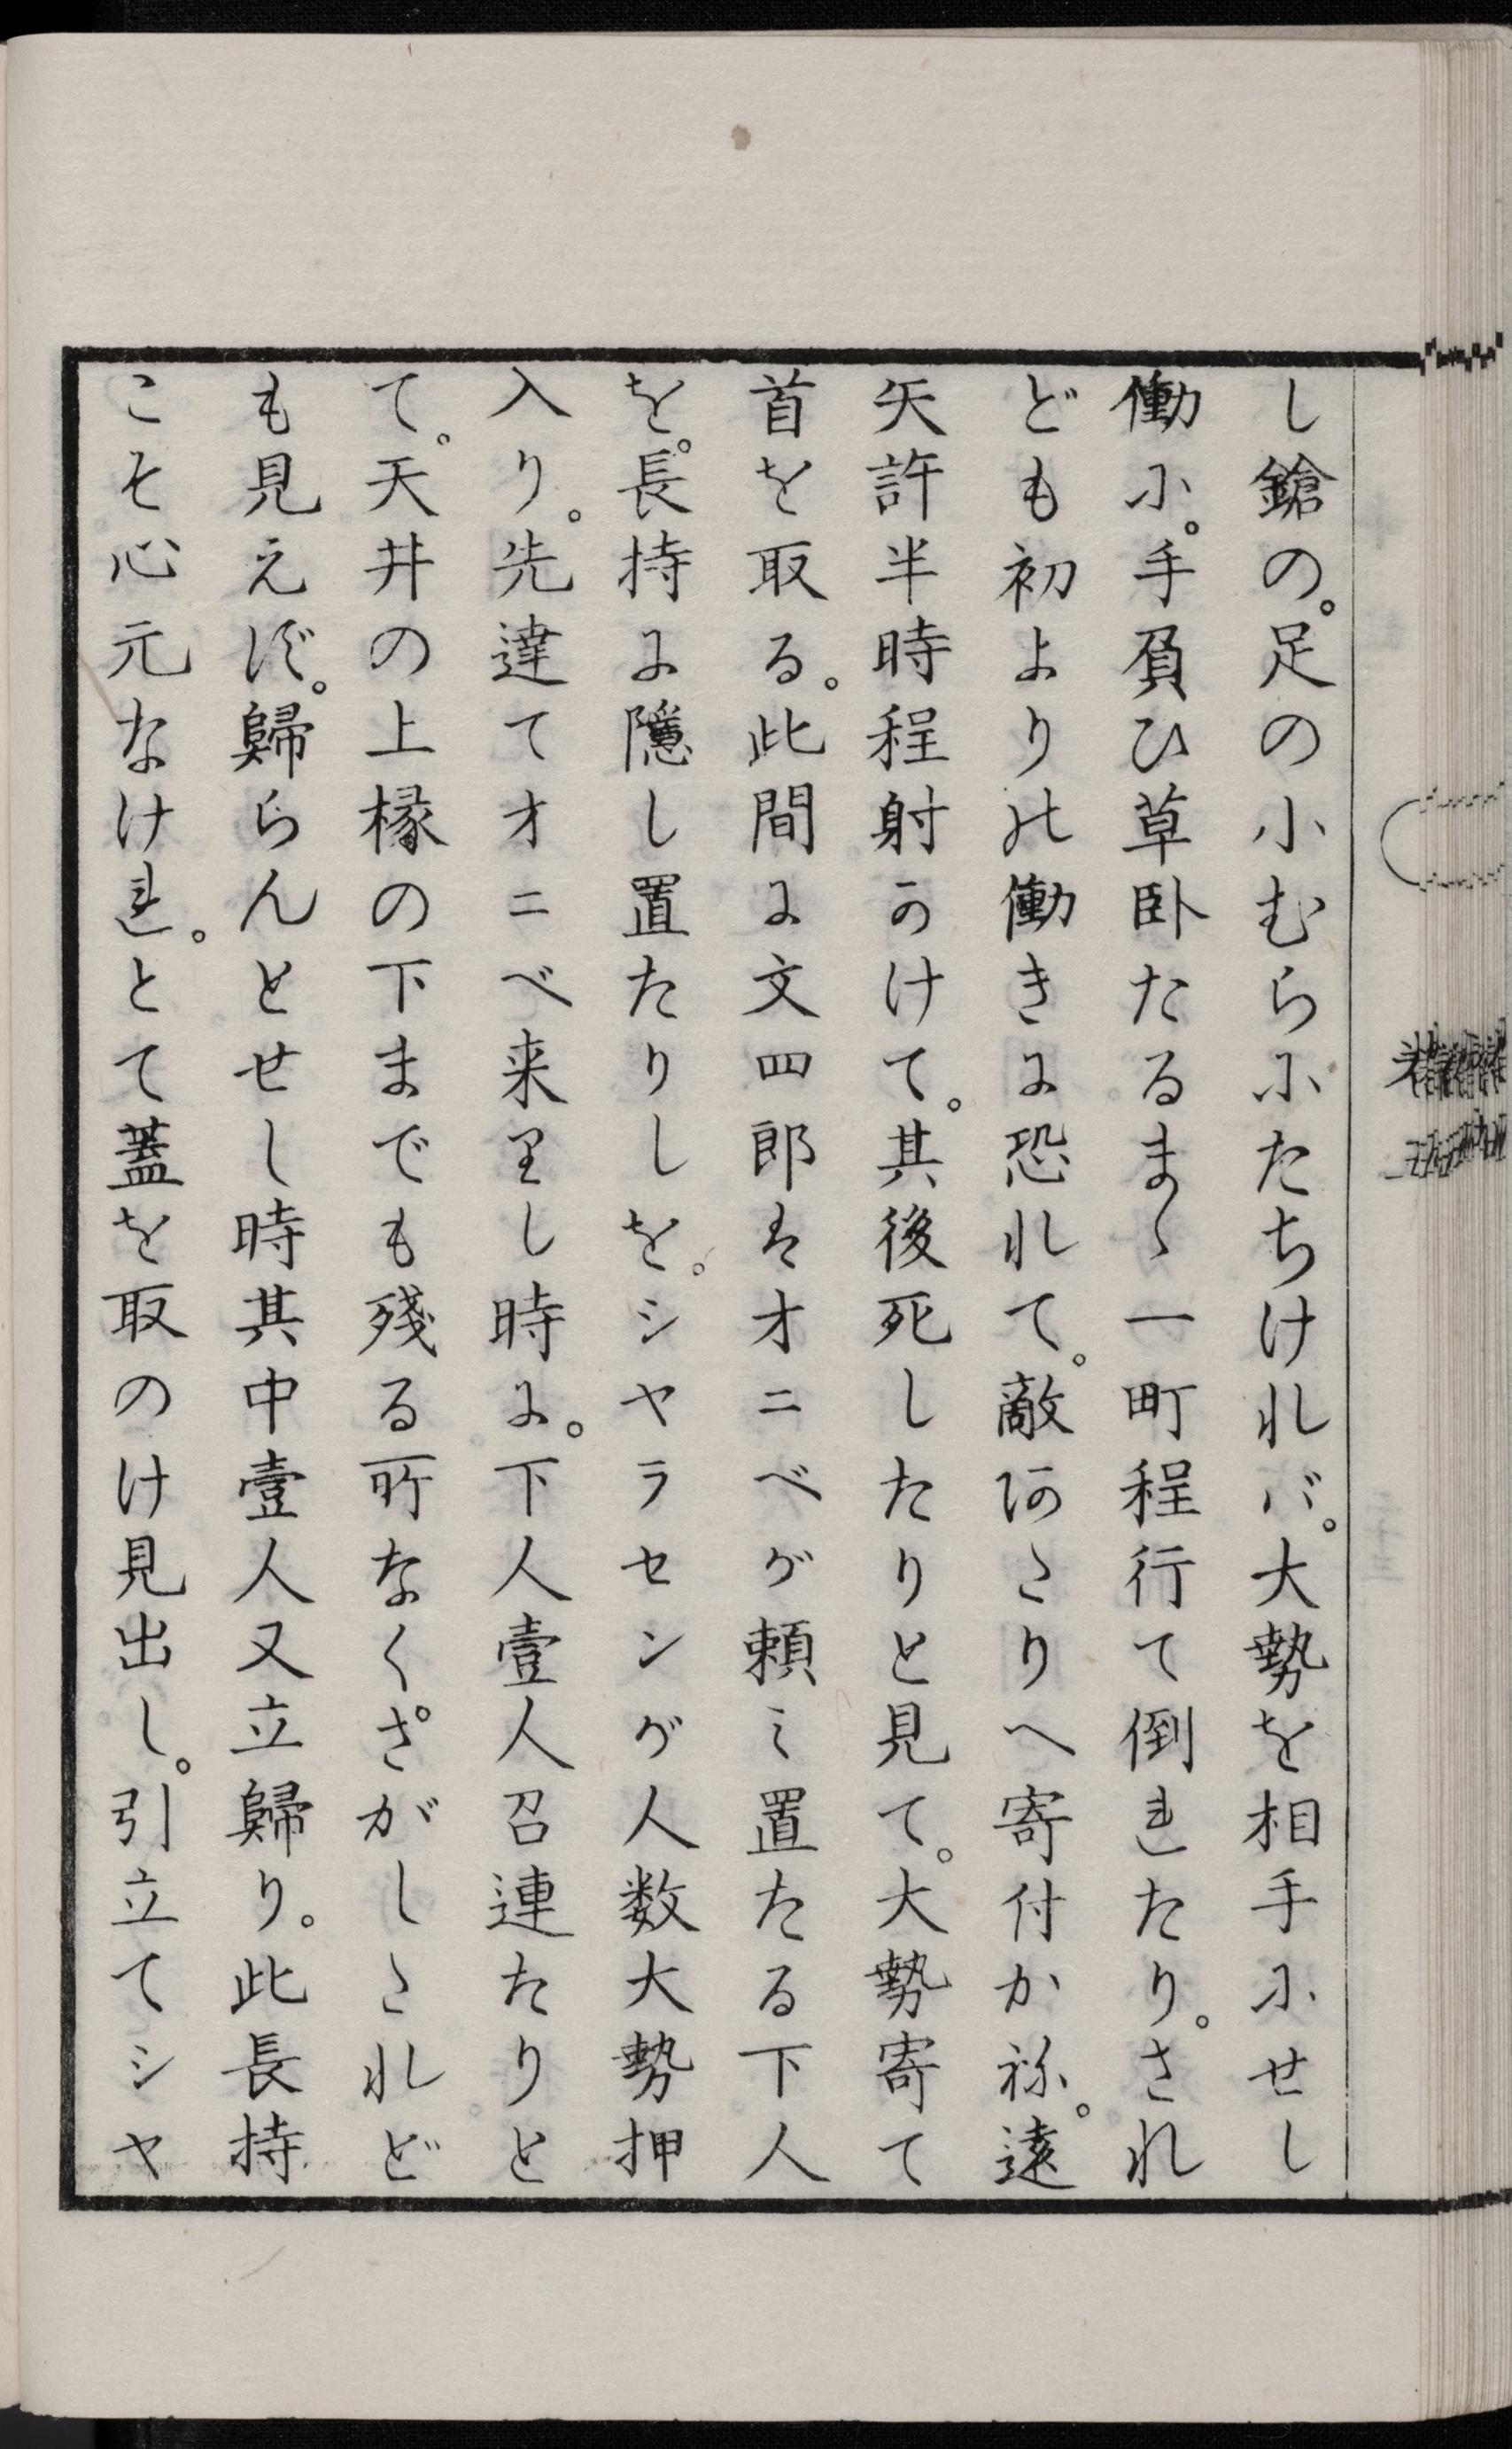 し鎗の。足の小むらにたちけれバ。大勢を相手にせし
働に。手負ひ草臥たるまゝ一町程行て倒れたり。され
ども初よりの働きに恐れて。敵あたりへ寄付かね。遠
矢許半時程射かけて。其後死したりと見て。大勢寄て
首を取る。此間に文四郎はオニベが頼ミ置たる下人
を。長持に隠し置たりしを。シヤラセンが人数大勢押
入り。先達てオニベ来りし時に。下人壹人召連たりと
て。天井の上椽の下までも残る所なくさがしゝれど
も見えず。歸らんとせし時其中壹人又立歸り。此長持
こそ心元なけれ。とて蓋を取のけ見出し。引立てシヤ